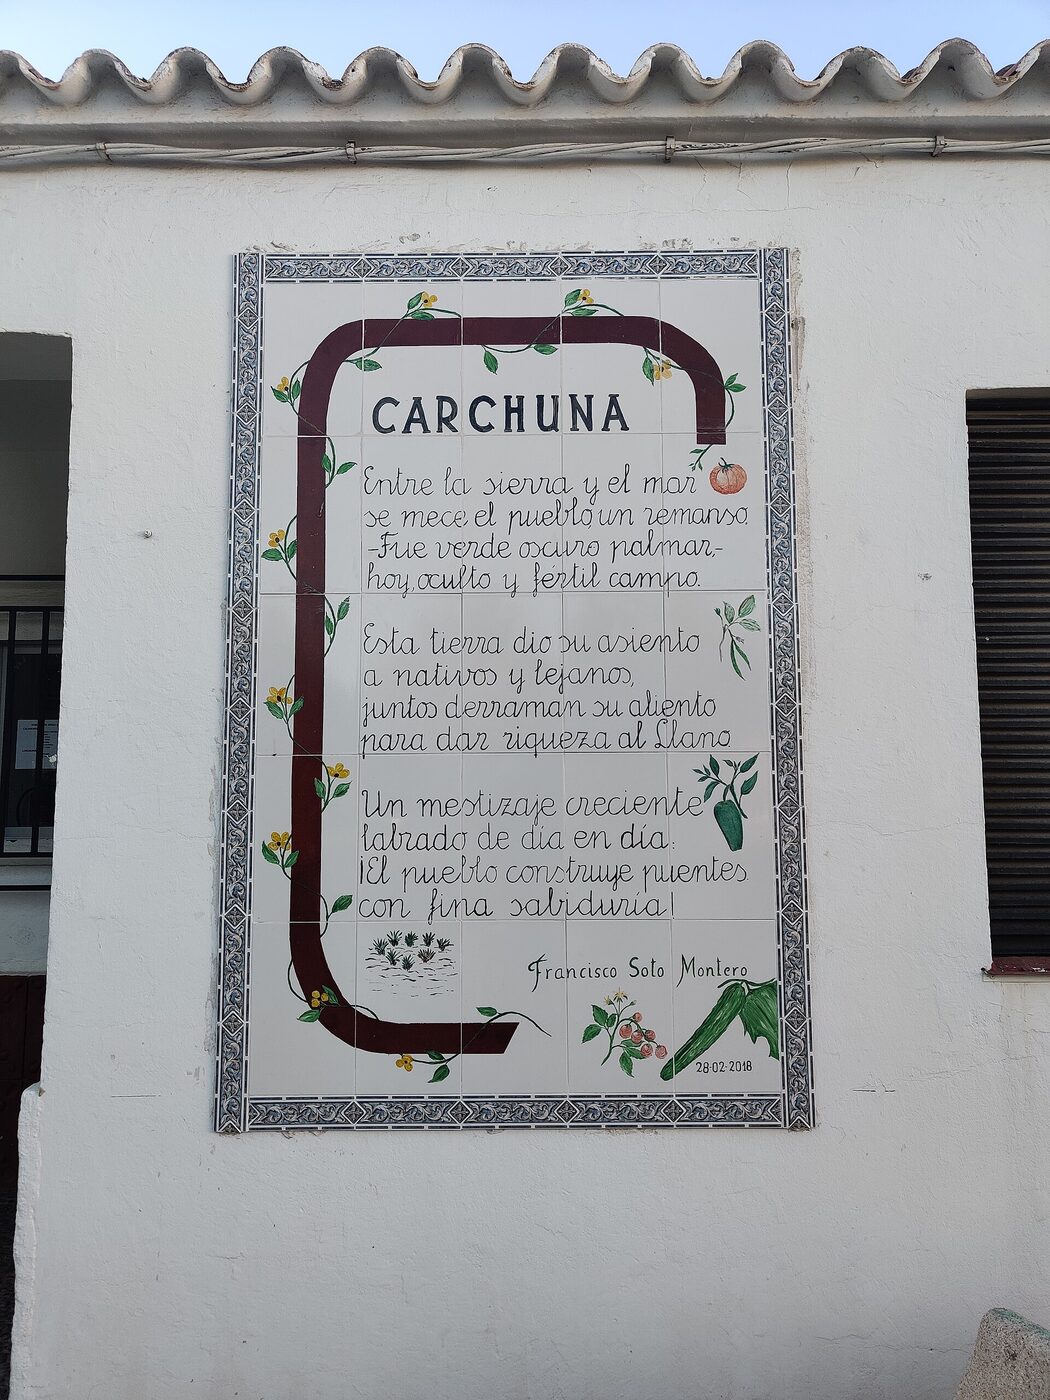 CARCHUNA
Entre la sierra y el mar
se mece el pueblo un remanso.
-Fue verde oscuro palmar,-
hoy, oculto y fértil campo.
Esta tierra dio su asiento
a nativos y lejanos,
juntos derraman su aliento
para dar riqueza al Llano
Un mestizaje creciente
labrado de día en día.
¡El pueblo construye puentes
con fina sabiduría!
Francisco Soto Montero
28-02-2018